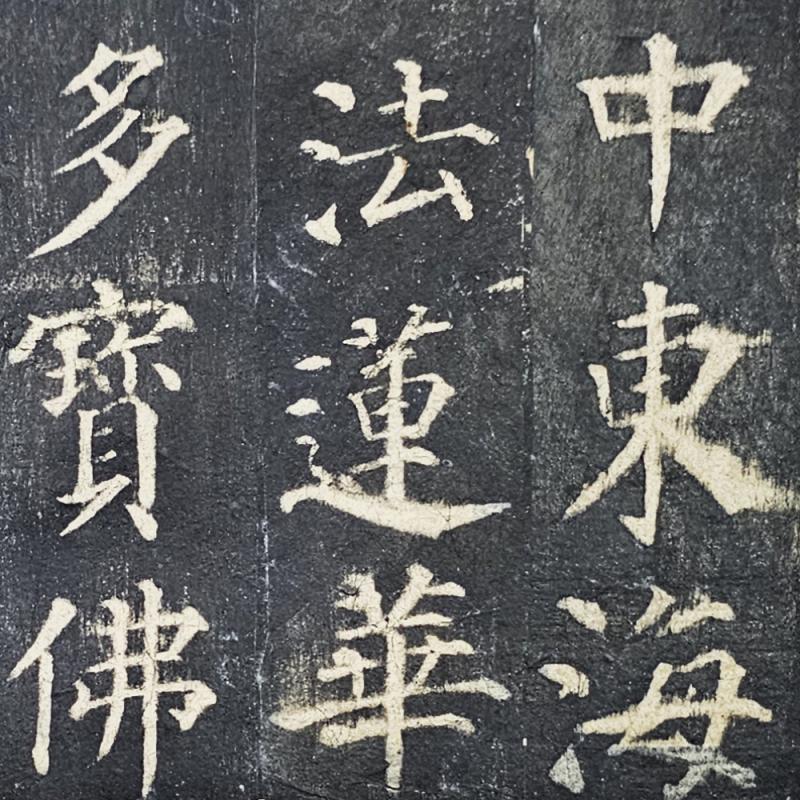 中東海
法蓮華
多寶佛